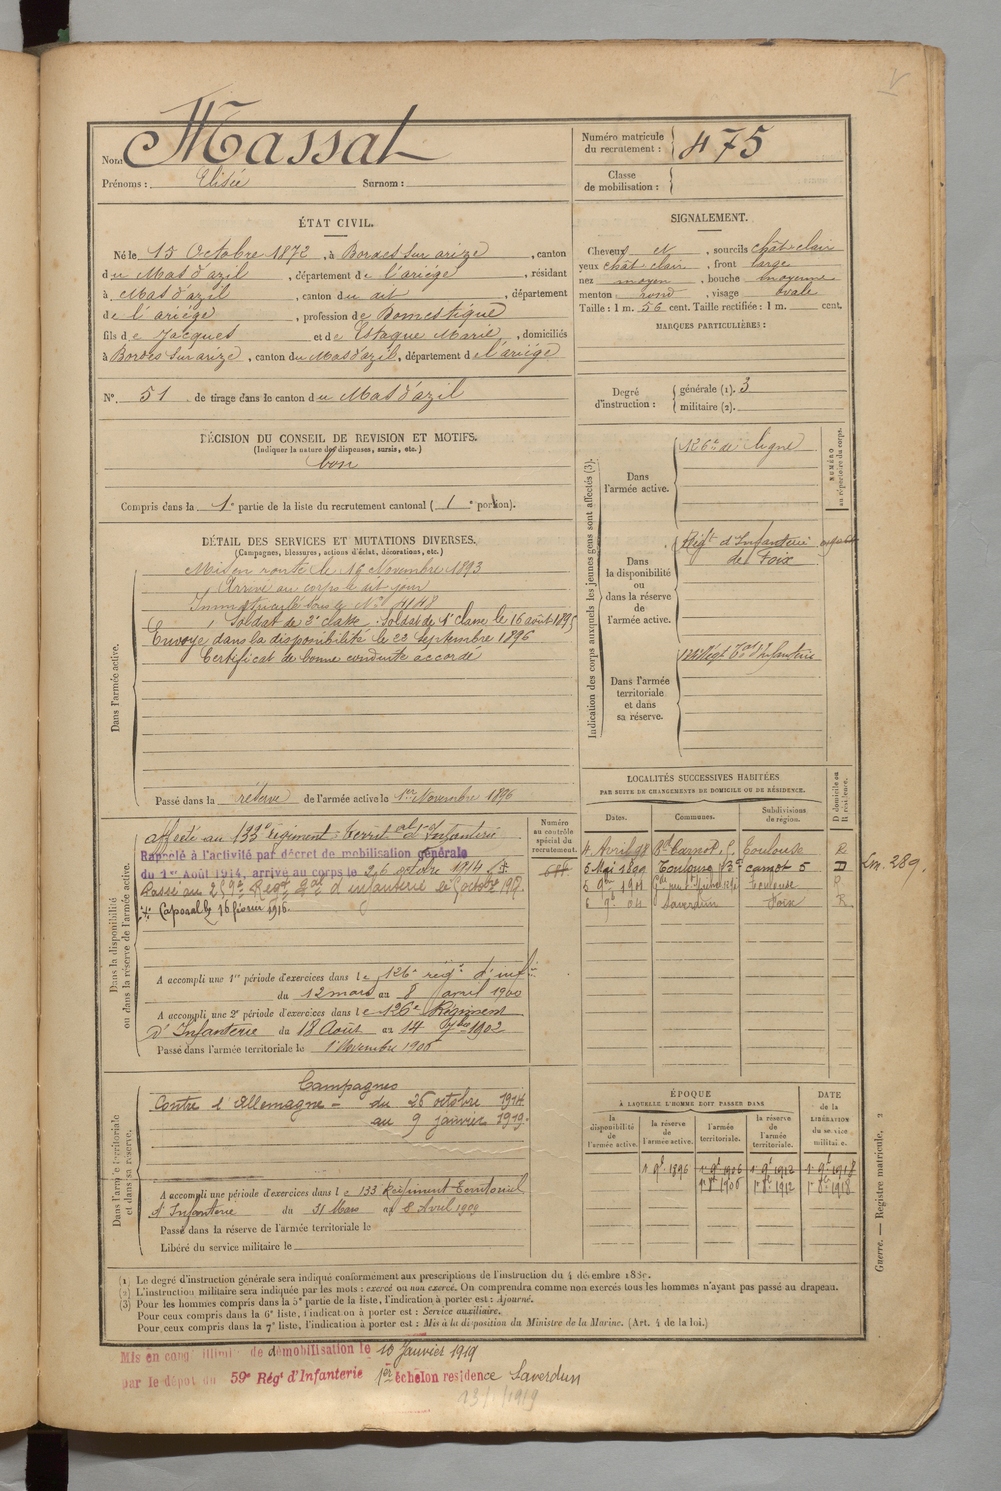 Nom Massat
Prénoms : Elisée Surnom :
Numéro matricule du recrutement : 475
Classe de mobilisation :
ÉTAT CIVIL.
Né le 15 Octobre 1872, à Bordes sur arize, canton
du Mas d'azil, département de l'ariège, résidant
à Mas d'azil, canton du dit, département
de l'ariège, profession de Domestique
fils de Jacques et de Estaque Marie, domiciliés
à Bordes sur arize, canton du Mas d'azil, département de l'ariège
N° 51 de tirage dans le canton du Mas d'azil
DÉCISION DU CONSEIL DE REVISION ET MOTIFS.
(Indiquer la nature des dispenses, sursis, etc.)
bon
Compris dans la 1e partie de la liste du recrutement cantonal (1e portion).
SIGNALEMENT.
Cheveux et, sourcils chât-clair
yeux chât clair, front large
nez moyen, bouche moyenne
menton rond, visage ovale
Taille : 1 m. 56 cent. Taille rectifiée : 1 m. cent.
MARQUES PARTICULIÈRES :
Degré d'instruction : générale (1). 3
militaire (2).
DÉTAIL DES SERVICES ET MUTATIONS DIVERSES.
(Campagnes, blessures, actions d'éclat, décorations, etc.)
Dans l'armée active.
Mis en route le 16 Novembre 1893
Arrivé au corps le dit jour
Immatriculé sous le N° 4148
Soldat de 2e classe. Soldat de 1e classe le 16 août 1895
Envoyé dans la disponibilité le 23 Septembre 1896
Certificat de bonne conduite accordé
Passé dans la réserve de l'armée active le 1er Novembre 1896
Indication des corps auxquels les jeunes gens sont affectés (3).
NUMÉRO au répertoire du corps.
Dans l'armée active.
126e de ligne
Dans la disponibilité ou dans la réserve de l'armée active.
Régt d'Infanterie
de Foix
Dans l'armée territoriale et dans sa réserve.
Régt Tal d'Infanterie
Dans la disponibilité ou dans la réserve de l'armée active.
Affecté au 133e régiment Territal d'Infanterie
Rappelé à l'activité par décret de mobilisation générale
du 1er Août 1914, arrivé au corps le 26 octobre 1914
Passé au 259e Régt d'infanterie le
Caporal le 16 février 1916.
Numéro au contrôle spécial du recrutement.
A accompli une 1re période d'exercices dans le 126e régt d'infie
du 12 mars au 8 avril 1900
A accompli une 2e période d'exercices dans le 126e Régiment
d'Infanterie du 18 Août au 14 7bre 1902
Passé dans l'armée territoriale le 1 Novembre 1906
LOCALITÉS SUCCESSIVES HABITÉES
PAR SUITE DE CHANGEMENTS DE DOMICILE OU DE RÉSIDENCE.
Dates. Communes. Subdivisions de région. D domicile ou R résidence.
4 Avril 98 Bd Carnot, Toulouse R
5 Mai 1899 Toulouse Bd carnot 5 D
5 9bre 1901 Toulouse R
6 9b 04 Saverdun Foix R.
Lm. 289.
Dans l'armée territoriale et dans sa réserve.
Campagnes
Contre l'Allemagne - du 26 octobre 1914
au 9 janvier 1919.
A accompli une période d'exercices dans le 133 Régiment Territorial
d'Infanterie du 31 Mars au 8 Avril 1909
Passé dans la réserve de l'armée territoriale le
Libéré du service militaire le
ÉPOQUE
À LAQUELLE L'HOMME DOIT PASSER DANS
DATE de la LIBÉRATION du service militaire.
la disponibilité de l'armée active. la réserve de l'armée active. l'armée territoriale. la réserve de l'armée territoriale.
1er 9bre 1896 1er 9bre 1906 1er 9bre 1912 1er 9bre 1918
1er 8bre 1906 1er 8bre 1912 1er 8bre 1918
Guerre. — Registre matricule. 2
(1) Le degré d'instruction générale sera indiqué conformément aux prescriptions de l'instruction du 4 décembre 1889.
(2) L'instruction militaire sera indiquée par les mots : exercé ou non exercé. On comprendra comme non exercés tous les hommes n'ayant pas passé au drapeau.
(3) Pour les hommes compris dans la 5e partie de la liste, l'indication à porter est : Ajourné.
Pour ceux compris dans la 6e liste, l'indication à porter est : Service auxiliaire.
Pour ceux compris dans la 7e liste, l'indication à porter est : Mis à la disposition du Ministre de la Marine. (Art. 4 de la loi.)
Mis en congé illimité de démobilisation le 10 Janvier 1919
par le dépôt du 59e Régt d'Infanterie 1er échelon residence Saverdun